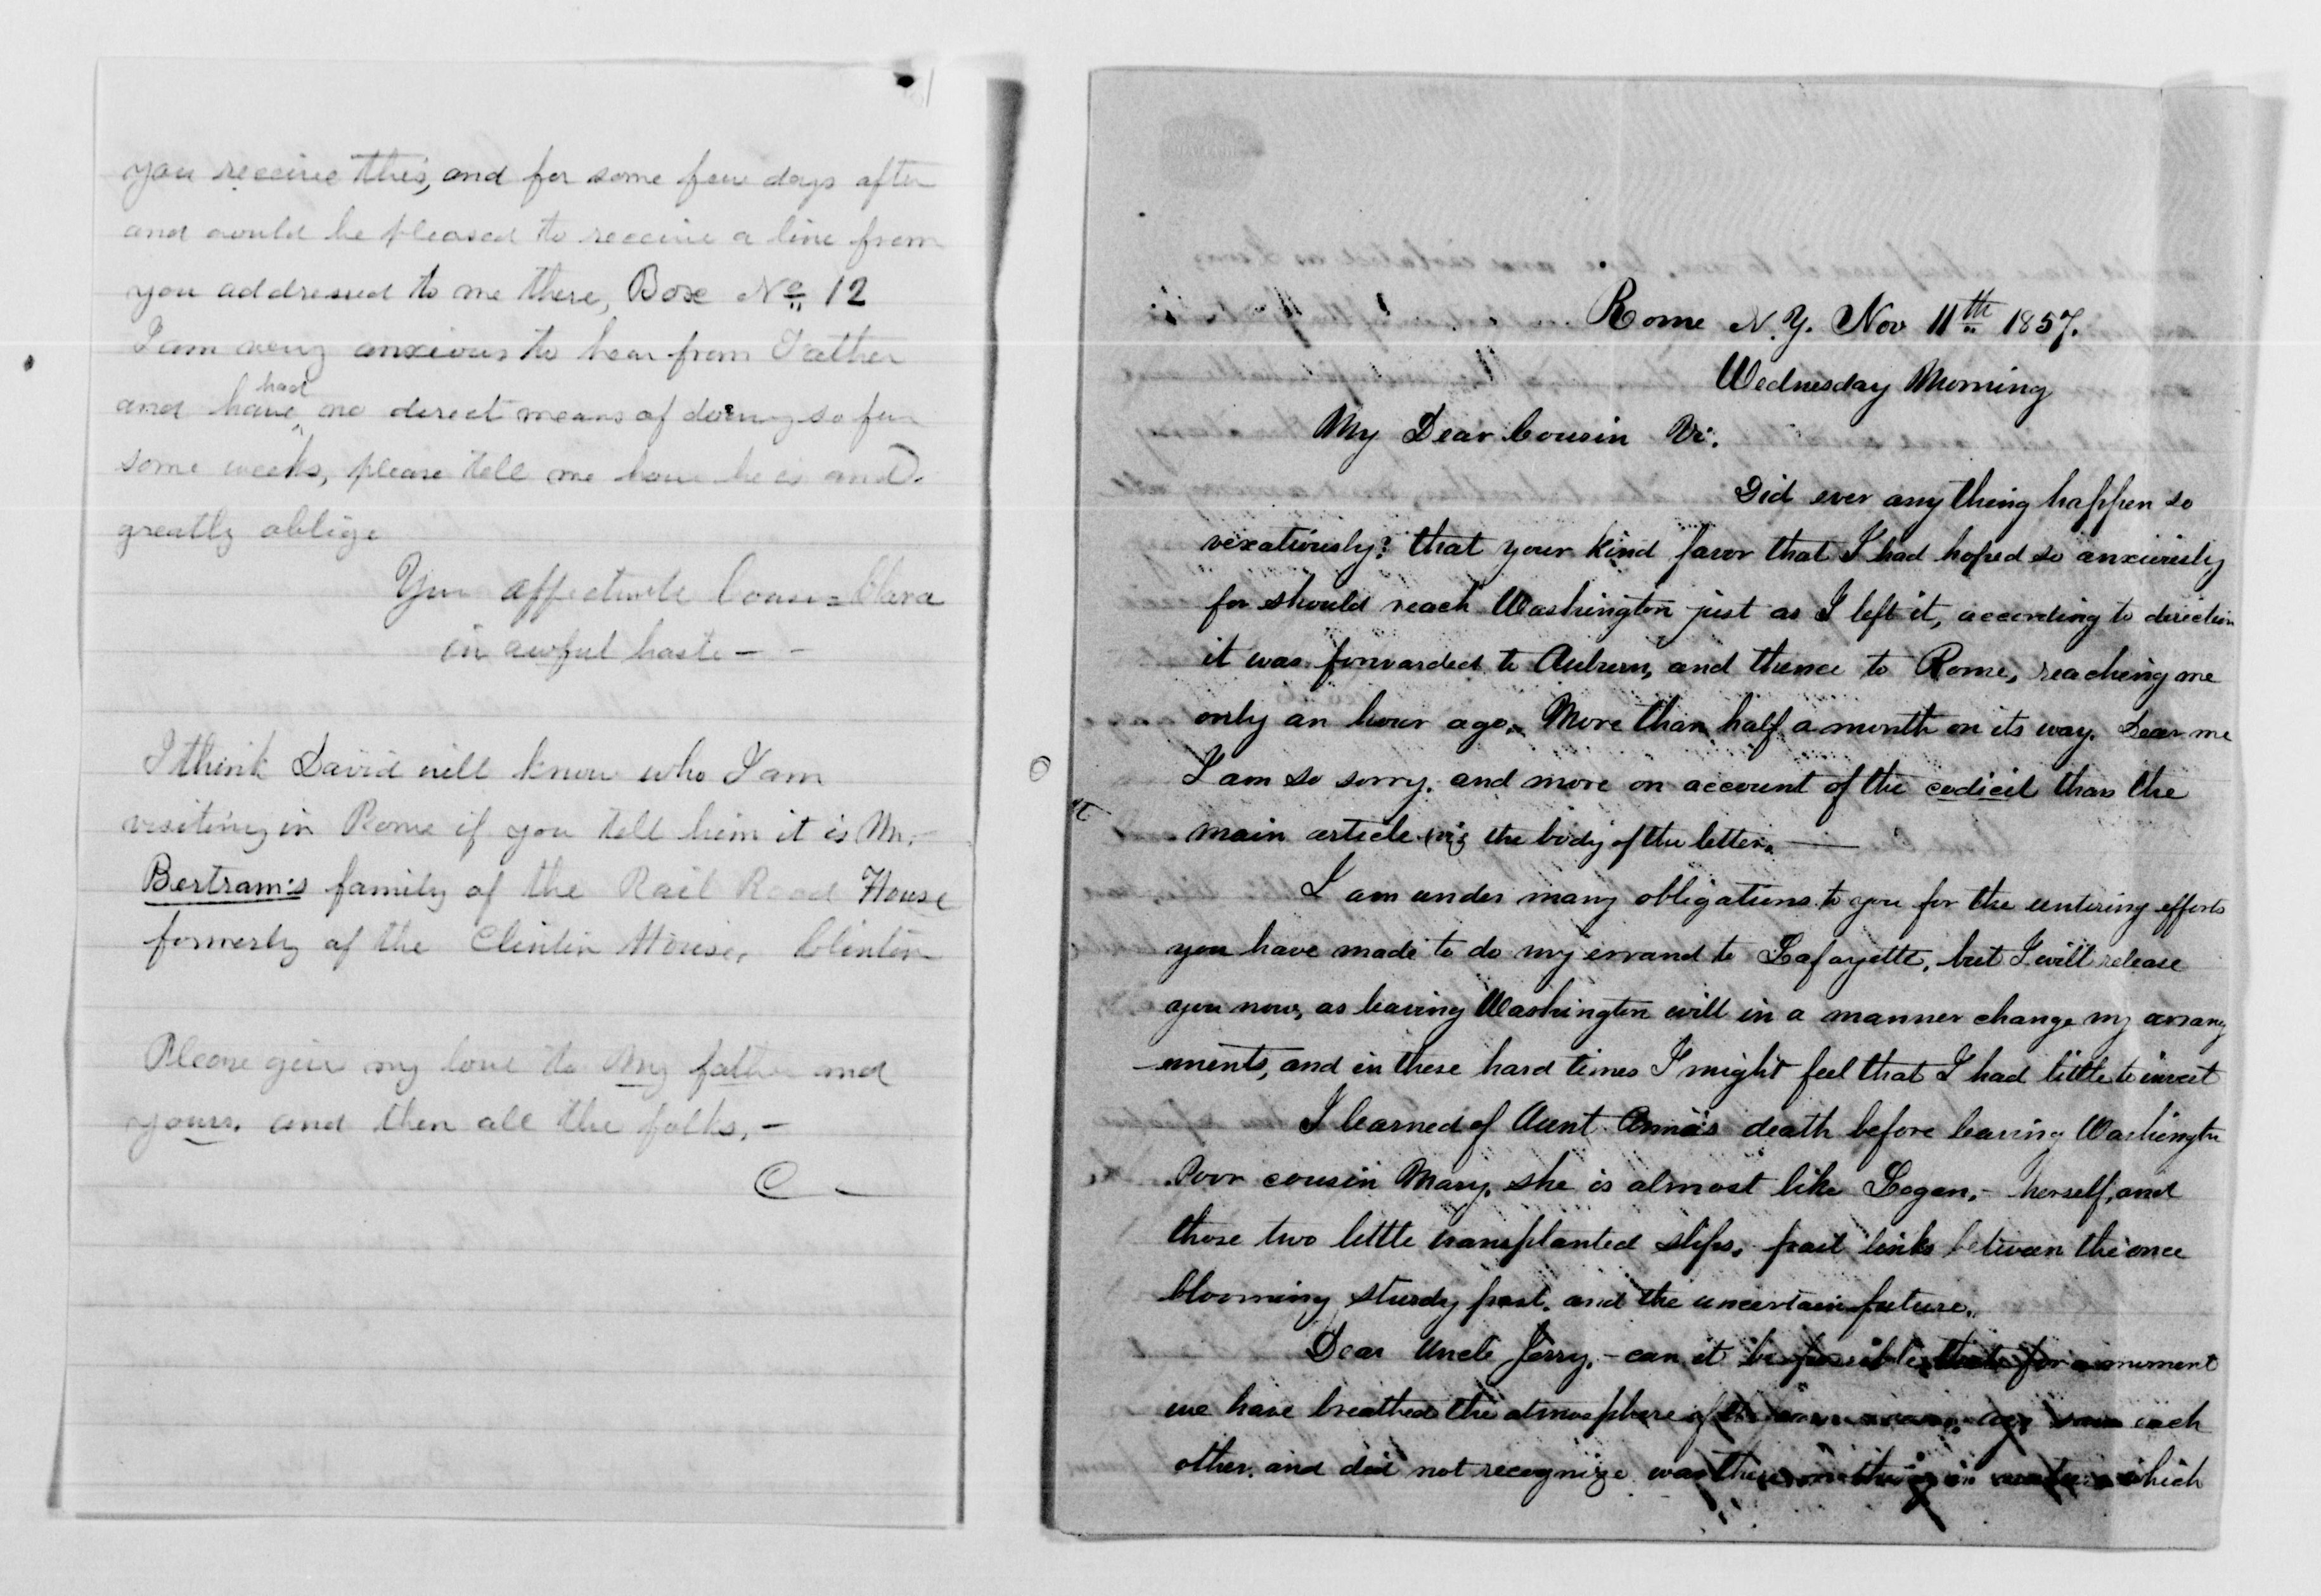 you receive this, and for some few days after
and would be pleased to receive a line from
you addressed to me there, Box No 12
I am very anxious to hear from Father
and have had no direct means of doing so for
some weeks, please tell me how he is and
greatly oblige
Your affectionate Cousin Clara
in awful haste - -
I think David will know who I am
visiting in Rome if you tell him it is Mr.
Bertram's family of the Rail Road House
formerly of the Clinton House, Clinton
Please give my love to my father and
yours. and then all the folks, -
C -
Rome N.Y. Nov 11th 1857.
Wednesday Morning
My Dear Cousin Vi:
Did ever anything happen so
vexatiously? that your kind favor that I had hoped so anxiously
for should reach Washington just as I left it, according to direction
it was forwarded to Auburn, and thence to Rome, reaching me
only an hour ago. More than half a month on its way. Dear me
I am so sorry. and more on account of the codicil than the
main article viz the body of the letter. —
I am under many obligations to you for the untiring efforts
you have made to do my errand to Lafayette, but I will release
you now, as leaving Washington will in a manner change my arrang
-ements, and in these hard times I might feel that I had little to invest
I learned of Aunt Anna's death before leaving Washington
Poor cousin Mary. she is almost like Logan, - herself, and
those two little transplanted slips. frail links between the once
blooming sturdy past. and the uncertain future.
Dear Uncle Jerry, - can it be possible that for a moment
we have breathed the atmosphere of the same each
other. and did not recognize was there nothing in which